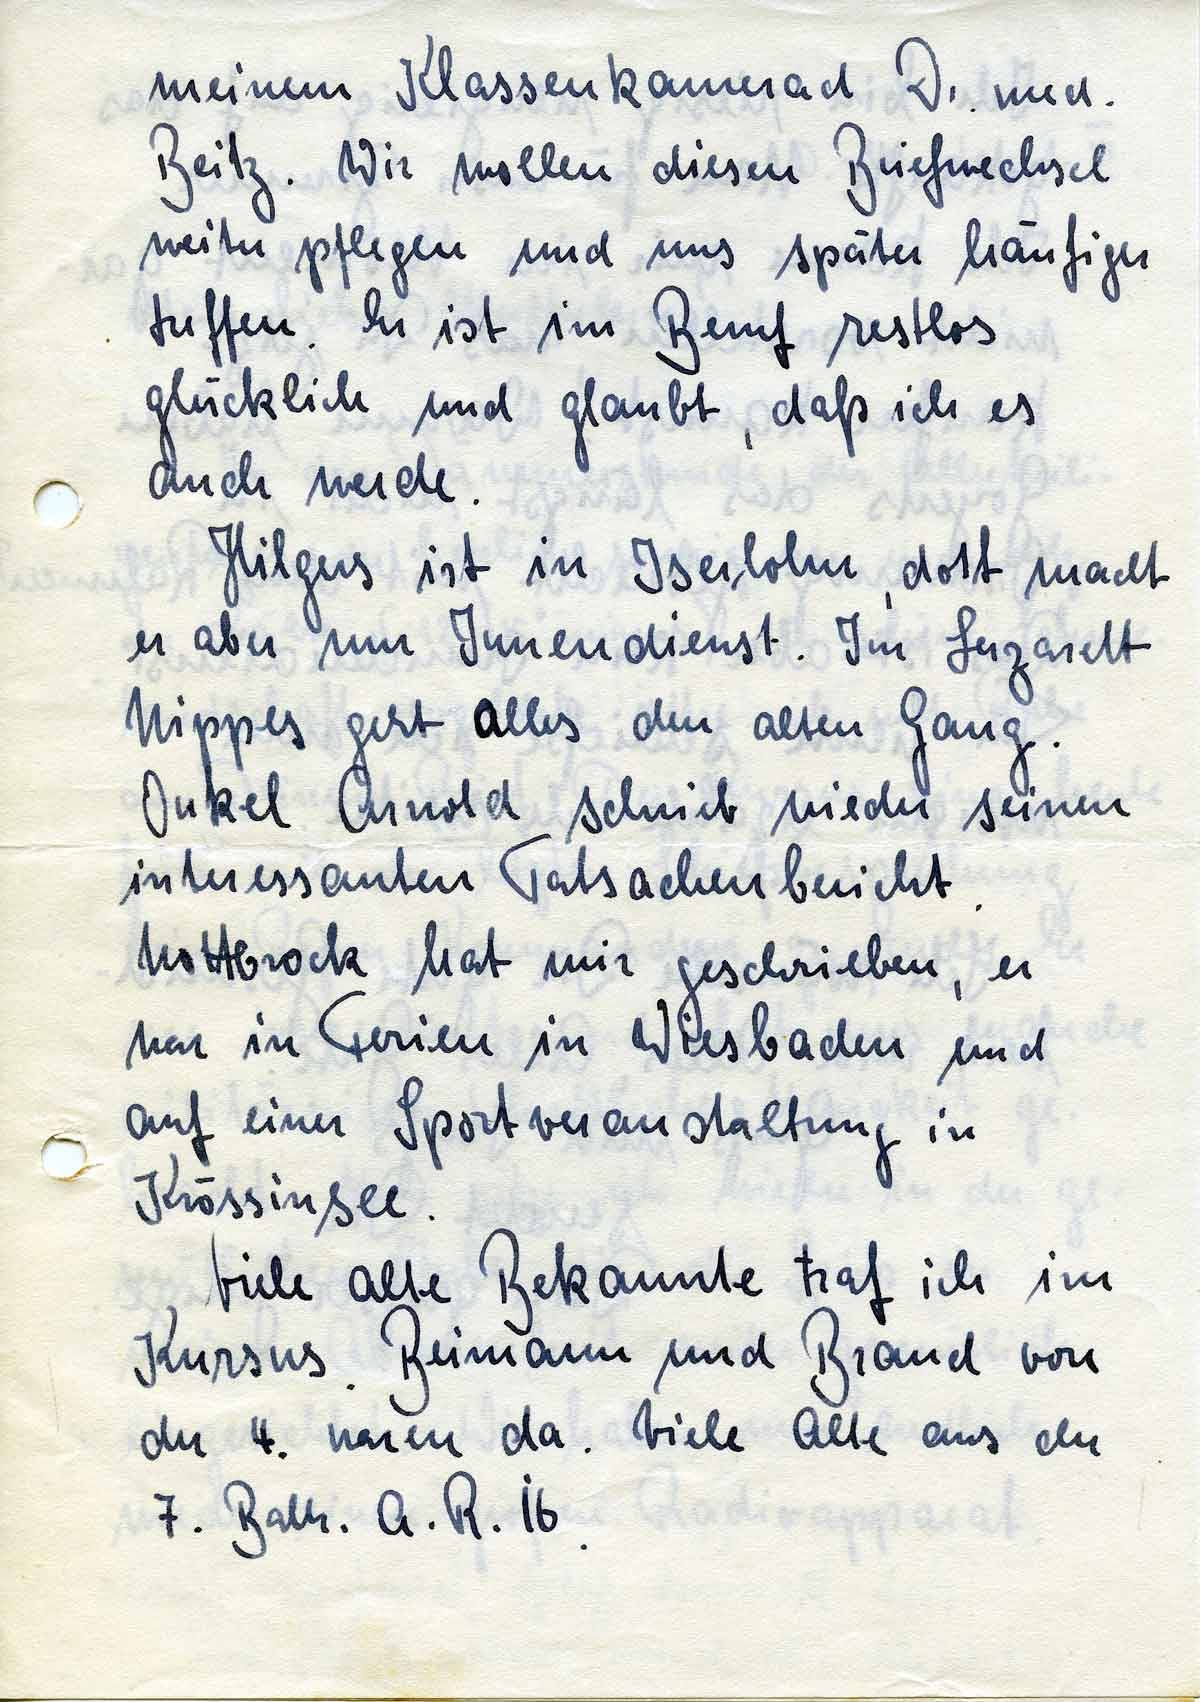 meinem Klassenkamerad Dr. med.
Beitz. Wir wollen diesen Briefwechsel
weiter pflegen und uns später häufiger
treffen. Er ist im Beruf restlos
glücklich und glaubt, daß ich es
auch werde.
Hilgers ist in Iserlohn, dort macht
er aber nur Innendienst. Im Lazarett
Nippes geht alles den alten Gang.
Onkel Arnold schrieb wieder seinen
interessanten Tatsachenbericht.
Nottbrock hat mir geschrieben, er
war in Ferien in Wiesbaden und
auf einer Sportveranstaltung in
Krössinsee.
Viele alte Bekannte traf ich im
Kursus. Beimann und Brand von
der 4. waren da. Viele Alte aus der
7. Battr. A. R. 16.